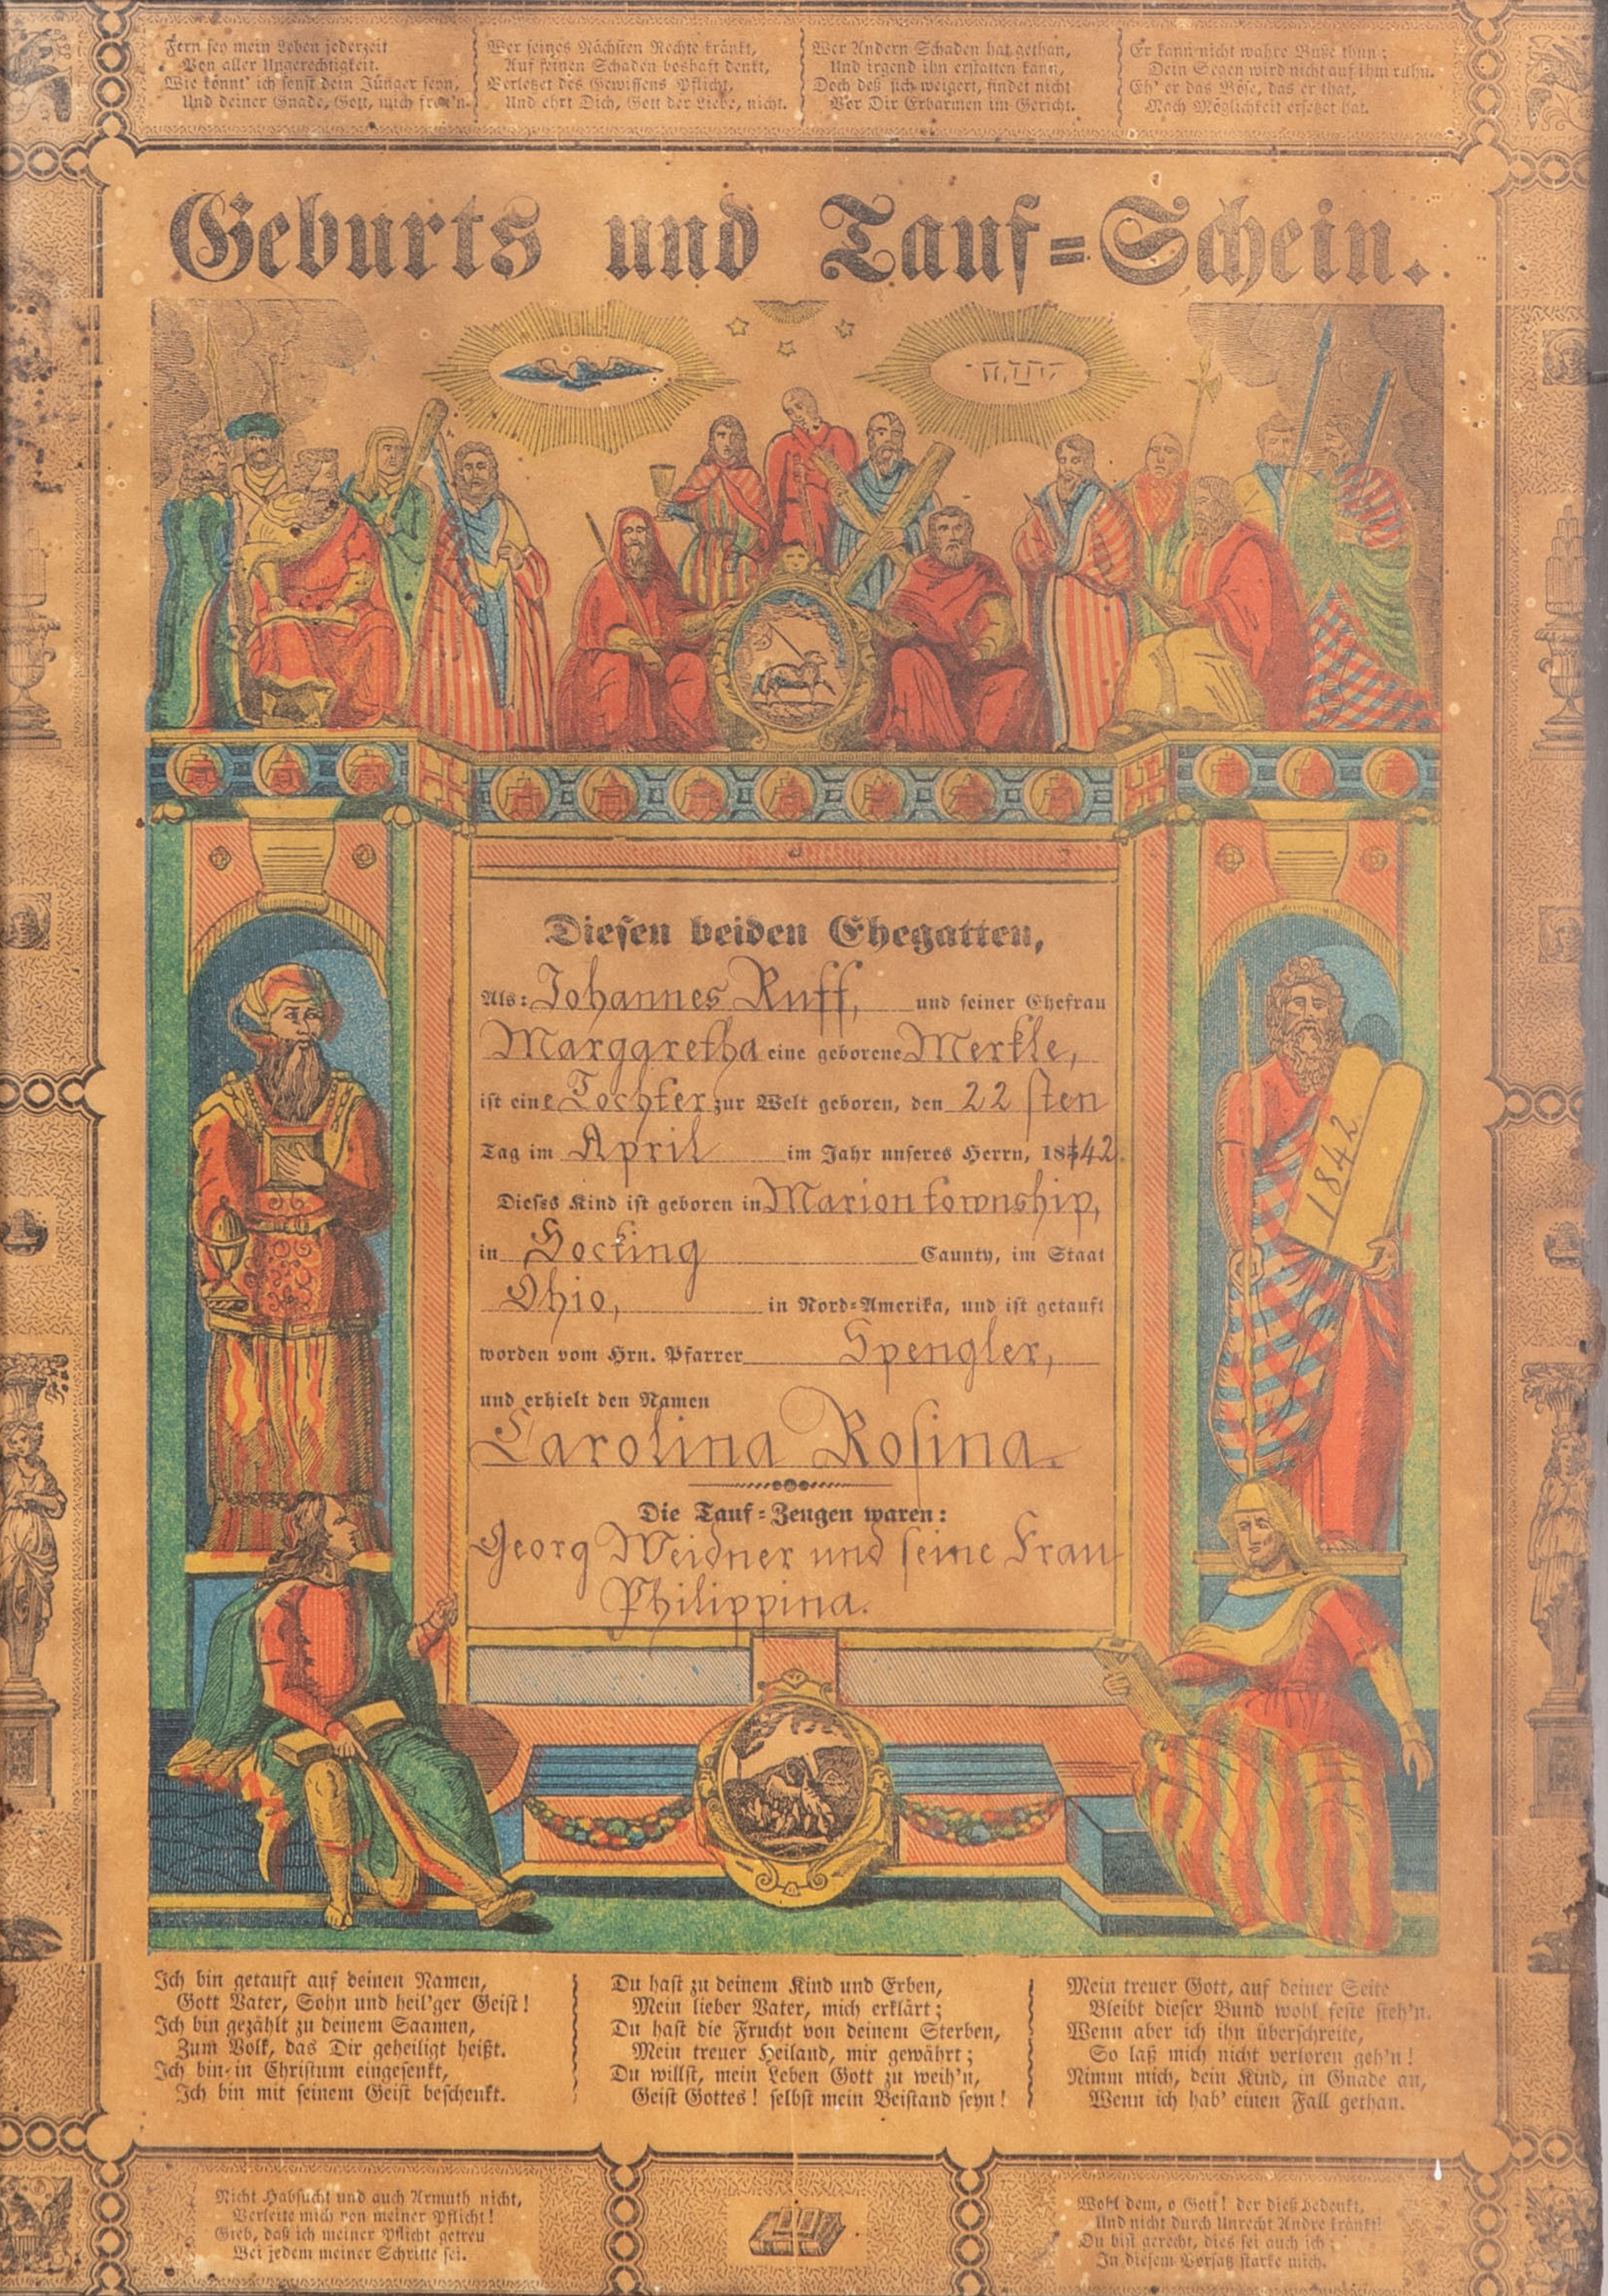 Fern sey mein Leben jederzeit
Von aller Ungerechtigkeit.
Wie könnt' ich sonst dein Jünger seyn,
Und deiner Gnade, Gott, mich freu'n.
Wer seines Nächsten Rechte kränkt,
Auf seinen Schaden boshaft denkt,
Verletzet des Gewissens Pflicht,
Und ehrt Dich, Gott der Liebe, nicht.
Wer Andern Schaden hat gethan,
Und irgend ihn erstatten kann,
Doch deß sich weigert, findet nicht
Vor Dir Erbarmen im Gericht.
Er kann nicht wahre Buße thun;
Dein Segen wird nicht auf ihm ruhn.
Eh' er das Böse, das er that,
Nach Möglichkeit ersetzet hat.
Geburts und Tauf=Schein.
יהוה
Diesen beiden Ehegatten,
Als: Johannes Ruff, und seiner Ehefrau
Marggretha eine geborene Merkle,
ist eine Tochter zur Welt geboren, den 22 sten
Tag im April im Jahr unseres Herrn, 1842.
Dieses Kind ist geboren in Marion township,
in Hocking Caunty, im Staat
Ohio, in Nord=Amerika, und ist getauft
worden vom Hrn. Pfarrer Spengler,
und erhielt den Namen
Carolina Rosina.
Die Tauf=Zeugen waren:
Georg Weidner und seine Frau
Philippina.
1842
Ich bin getauft auf deinen Namen,
Gott Vater, Sohn und heil'ger Geist!
Ich bin gezählt zu deinem Saamen,
Zum Volk, das Dir geheiligt heißt.
Ich bin in Christum eingesenkt,
Ich bin mit seinem Geist beschenkt.
Du hast zu deinem Kind und Erben,
Mein lieber Vater, mich erklärt;
Du hast die Frucht von deinem Sterben,
Mein treuer Heiland, mir gewährt;
Du willst, mein Leben Gott zu weih'n,
Geist Gottes! selbst mein Beistand seyn!
Mein treuer Gott, auf deiner Seite
Bleibt dieser Bund wohl feste steh'n.
Wenn aber ich ihn überschreite,
So laß mich nicht verloren geh'n!
Nimm mich, dein Kind, in Gnade an,
Wenn ich hab' einen Fall gethan.
Nicht Habsucht und auch Armuth nicht,
Verleite mich von meiner Pflicht!
Gieb, daß ich meiner Pflicht getreu
Bei jedem meiner Schritte sei.
Wohl dem, o Gott! der dieß bedenkt,
Und nicht durch Unrecht Andre kränkt!
Du bist gerecht, dies sei auch ich;
In diesem Vorsatz stärke mich.